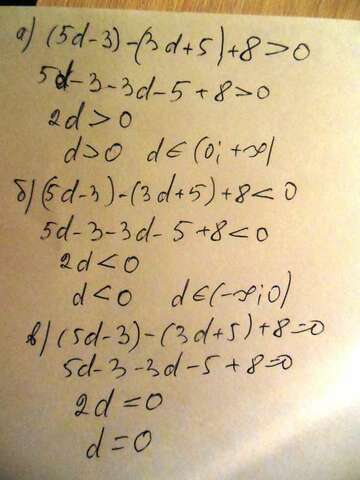 а) (5d-3)-(3d+5)+8>0
5d-3-3d-5+8>0
2d>0
d>0 d∈(0;+∞)
б) (5d-3)-(3d+5)+8<0
5d-3-3d-5+8<0
2d<0
d<0 d∈(-∞;0)
в) (5d-3)-(3d+5)+8=0
5d-3-3d-5+8=0
2d=0
d=0